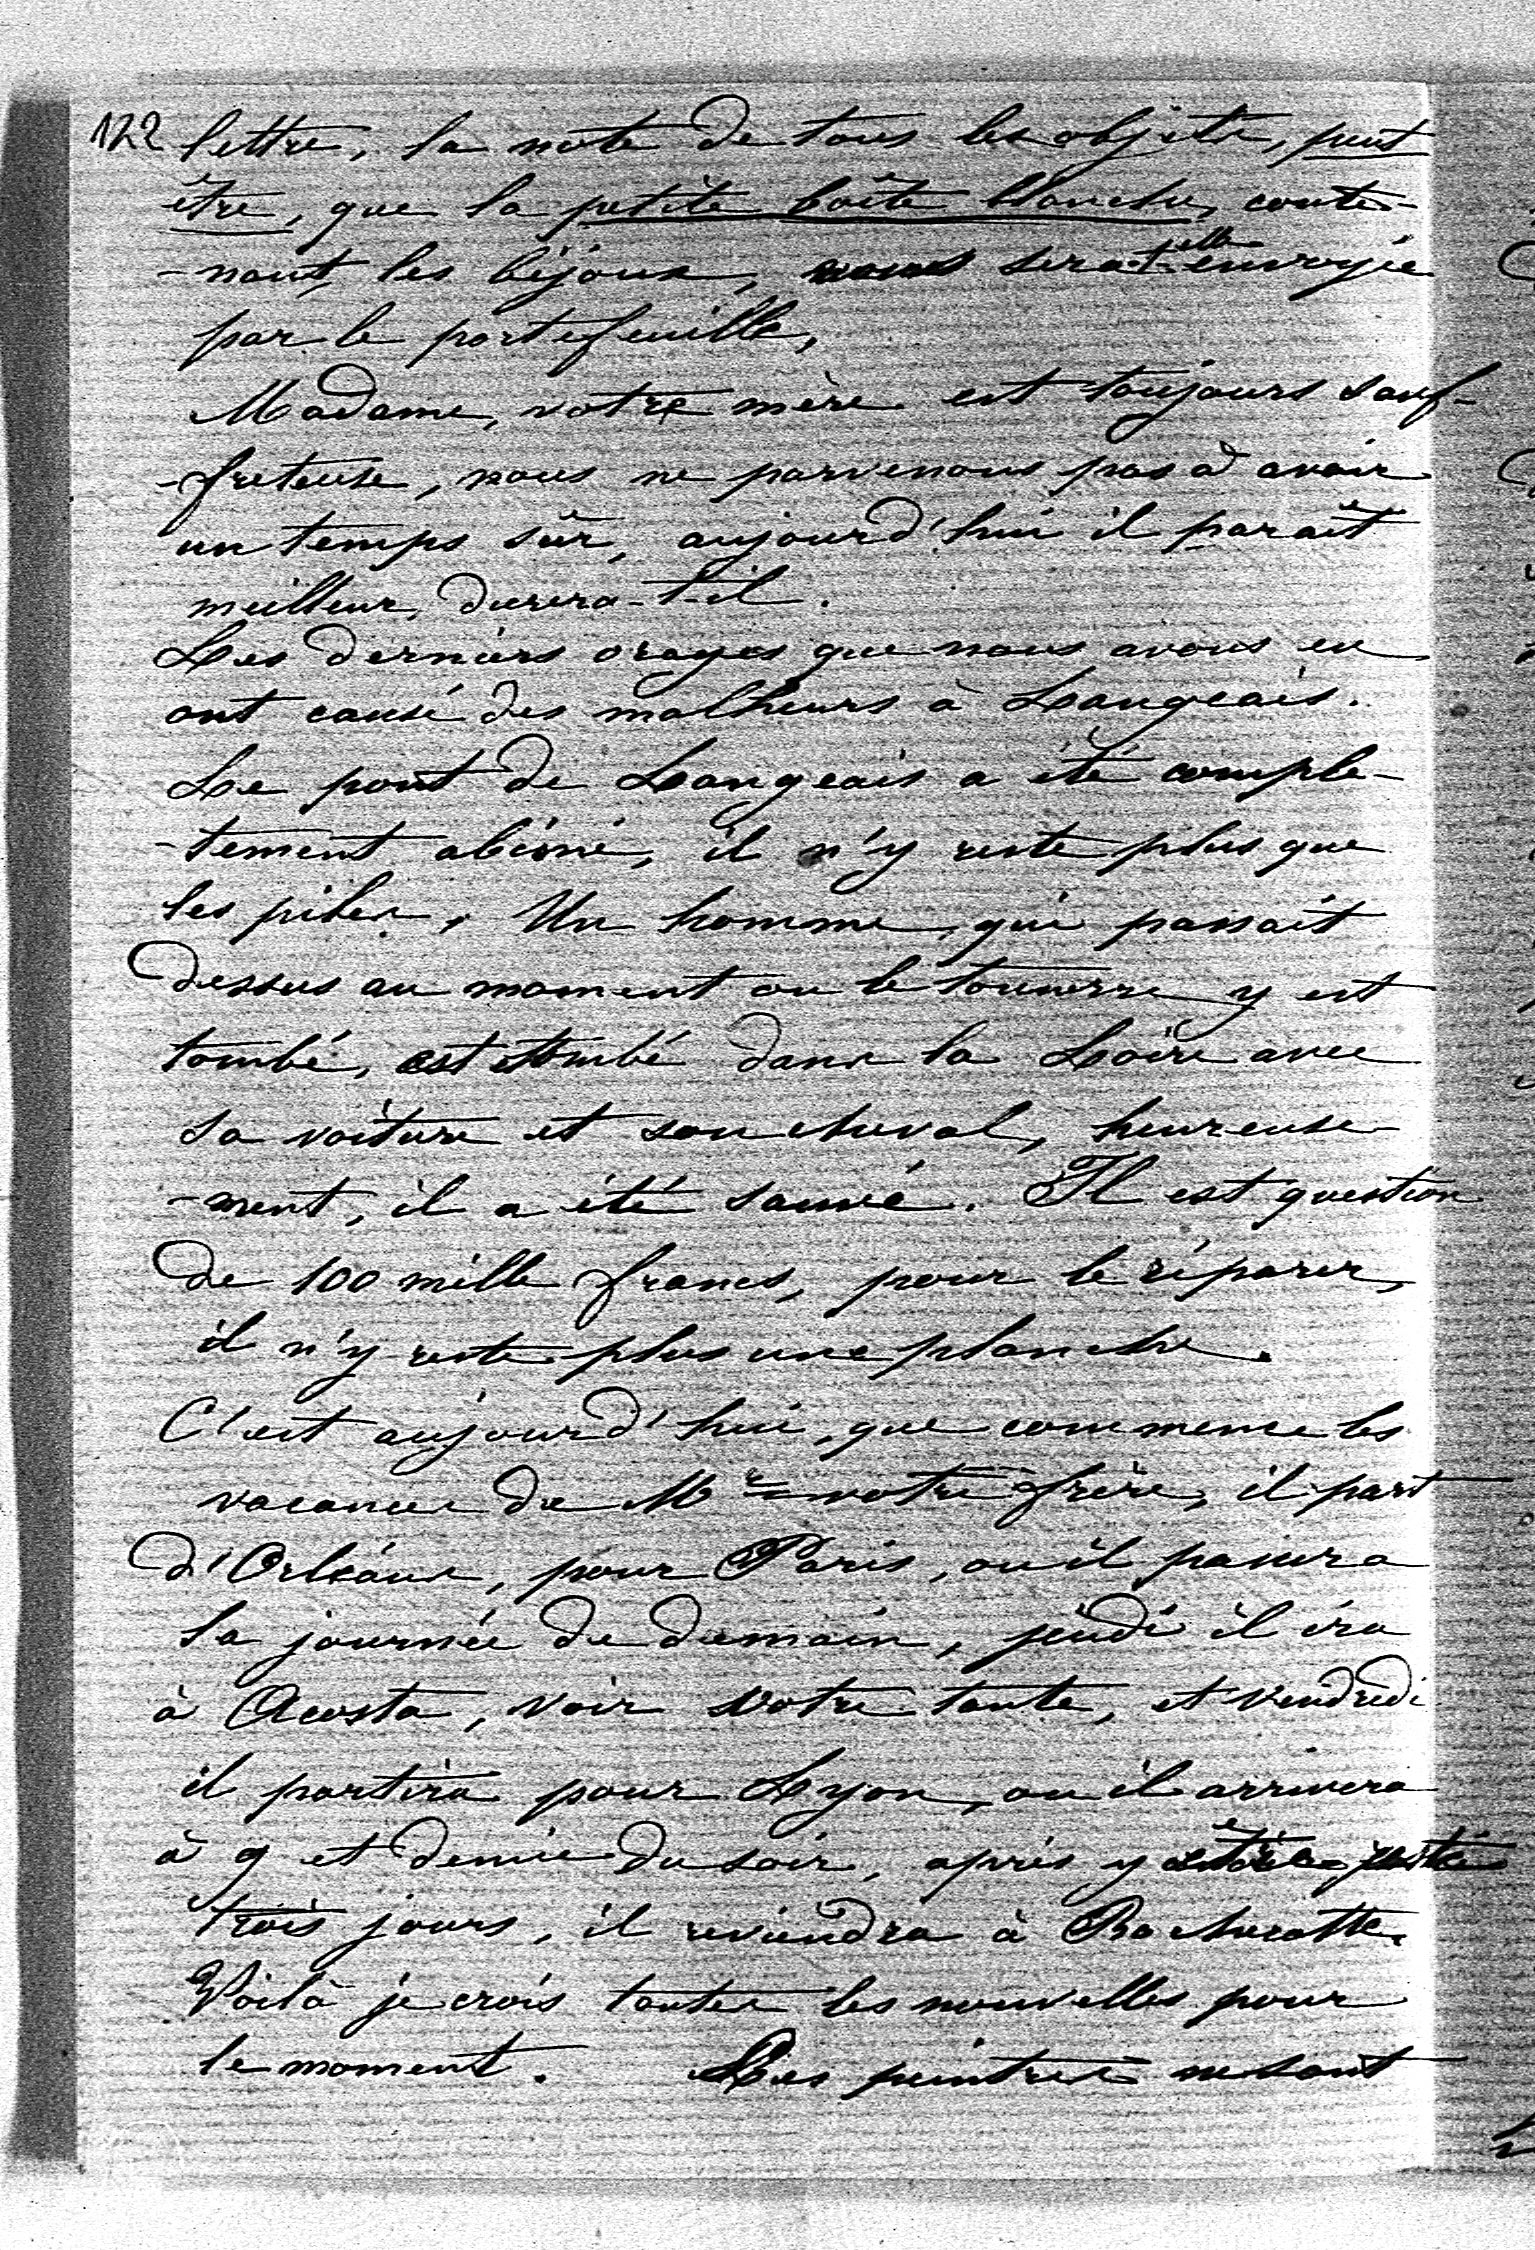 122 lettre, la note de tous les objets, peut
être, que la petite boîte blanche, conte-
-nant, les bijoux, sera-t-elle envoyée
par le portefeuille,
Madame, votre mère est toujours souf-
-freteuse, nous ne parvenons pas à avoir
un temps sûr, aujourd'hui il paraît
meilleur, durera-t-il.
Les derniers orages que nous avons eu
ont causé des malheurs à Langeais.
Le pont de Langeais a été comple-
-tement abîmé, il n'y reste plus que
les piles. Un homme, qui passait
dessus au moment ou le tonnerre y est
tombé, est tombé dans la Loire avec
sa voiture et son cheval, heureuse-
-ment, il a été sauvé. Il est question
de 100 mille francs, pour le réparer,
il n'y reste plus une planche.
C'est aujourd'hui, que commence les
vacances de Mr votre frère, il part
d'Orléans, pour Paris, ou il passera
la journée de demain, jeudi il ira
à Acosta, voir votre tante, et vendredi
il partira pour Lyon, ou il arrivera
à 9 et demie du soir, après y être resté
trois jours, il reviendra à Rochecotte.
Voilà je crois toutes les nouvelles pour
le moment. Les peintres ne sont